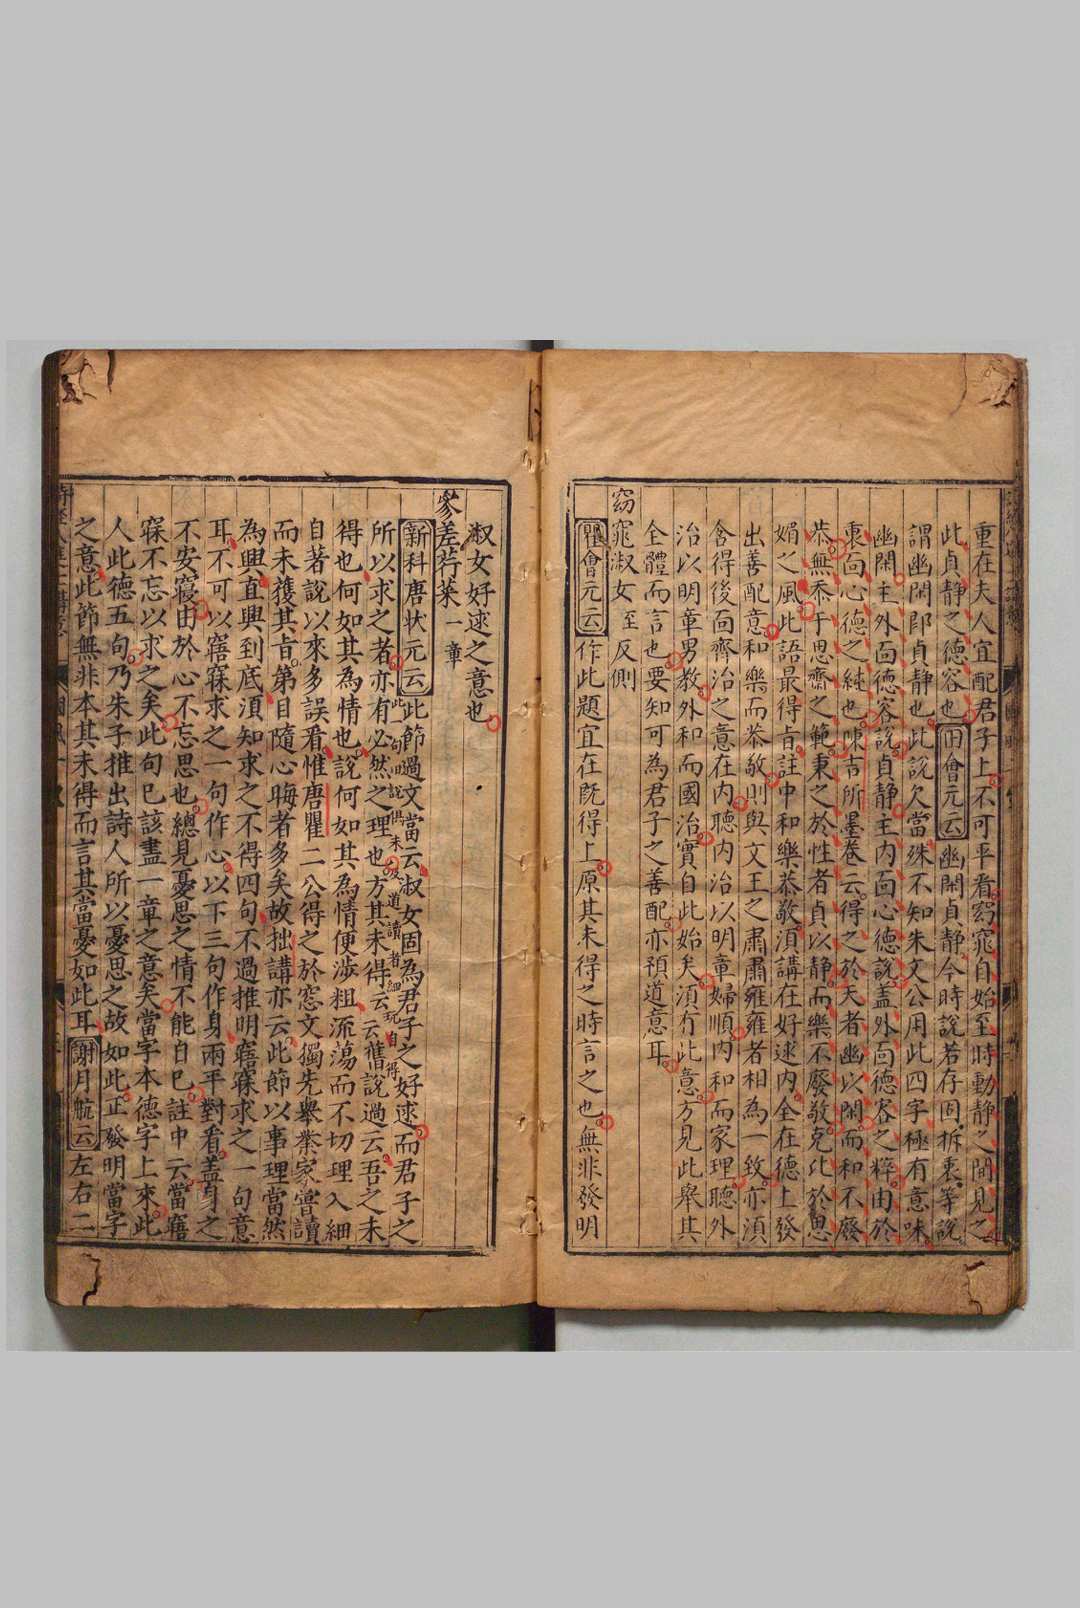 重在夫人宜配君子上不可平看窈窕自始至時動静之間見之
此貞静之德容也田會元云幽閑貞静今時說若存固析衷等說
謂幽閑即貞静也此說欠當殊不知朱文公用此四字極有意味
幽閑主外面德容說貞静主内面心德說盖外面德容之粹由於
裏面心德之純也陳吉所墨卷云得之於天者幽以閑而和不廢
恭無忝于思齋之範秉之於性者貞以静而樂不廢敬克化於思
媚之風此語最得旨註中和樂恭敬湏講在好逑内全在德上發
出善配意和樂而恭敬則與文王之肅肅雍雍者相為一致亦湏
含得後面齊治之意在内聽内治以明章婦順内和而家理聽外
治以明章男教外和而國治實自此始矣湏有此意方見此舉其
全體而言也要知可為君子之善配亦預道意耳
窈窕淑女至反側
瞿會元云作此題宜在既得上原其未得之時言之也無非發明
淑女好逑之意也
參差荇菜一章
新科唐狀元云此節過文當云淑女固為君子之好逑而君子之
此句旧說俱未及道讀者細玩自得
所以求之者亦有必然之理也方其未得云云舊說過云吾之未
得也何如其為情也說何如其為情便涉粗流蕩而不切理入細
自著說以來多誤看惟唐瞿二公得之於窓文獨先舉業家嘗讀
而未獲其旨第目隨心晦者多矣故拙講亦云此節以事理當然
為興直興到底湏知求之不得四句不過推明寤寐求之一句意
耳不可以寤寐求之一句作心以下三句作身兩平對看盖身之
不安寢由於心不忘思也總見憂思之情不能自已註中云當寤
寐不忘以求之矣此句已該盡一章之意矣當字本德字上來此
人此德五句乃朱子推出詩人所以憂思之故如此正發明當字
之意此節無非本其未得而言其當憂如此耳謝月航云左右二